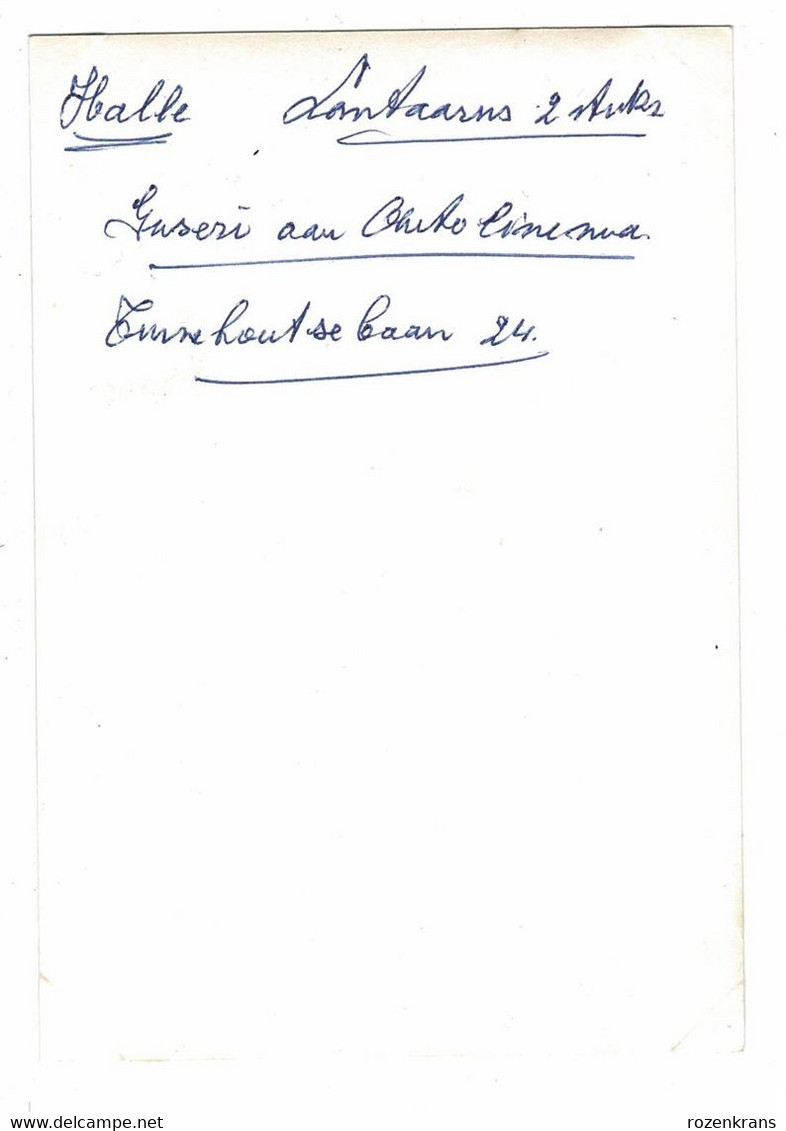 Halle Lantaarns 2 stuks
aan Auto Cinema.
Turnhoutsebaan 24.
delcampe.net rozenkrans